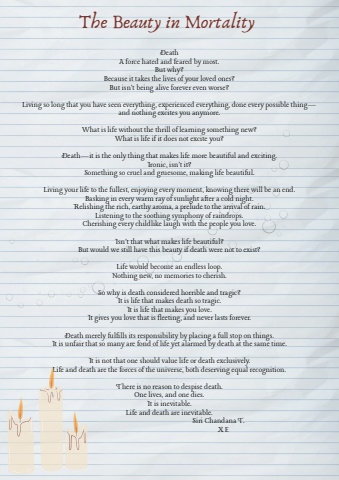 The Beauty in Mortality
Death
A force hated and feared by most.
But why?
Because it takes the lives of your loved ones?
But isn't being alive forever even worse?
Living so long that you have seen everything, experienced everything, done every possible thing—
and nothing excites you anymore.
What is life without the thrill of learning something new?
What is life if it does not excite you?
Death—it is the only thing that makes life more beautiful and exciting.
Ironic, isn't it?
Something so cruel and gruesome, making life beautiful.
Living your life to the fullest, enjoying every moment, knowing there will be an end.
Basking in every warm ray of sunlight after a cold night.
Relishing the rich, earthy aroma, a prelude to the arrival of rain.
Listening to the soothing symphony of raindrops.
Cherishing every childlike laugh with the people you love.
Isn't that what makes life beautiful?
But would we still have this beauty if death were not to exist?
Life would become an endless loop.
Nothing new, no memories to cherish.
So why is death considered horrible and tragic?
It is life that makes death so tragic.
It is life that makes you love.
It gives you love that is fleeting, and never lasts forever.
Death merely fulfills its responsibility by placing a full stop on things.
It is unfair that so many are fond of life yet alarmed by death at the same time.
It is not that one should value life or death exclusively.
Life and death are the forces of the universe, both deserving equal recognition.
There is no reason to despise death.
One lives, and one dies.
It is inevitable.
Life and death are inevitable.
Siri Chandana T.
X E